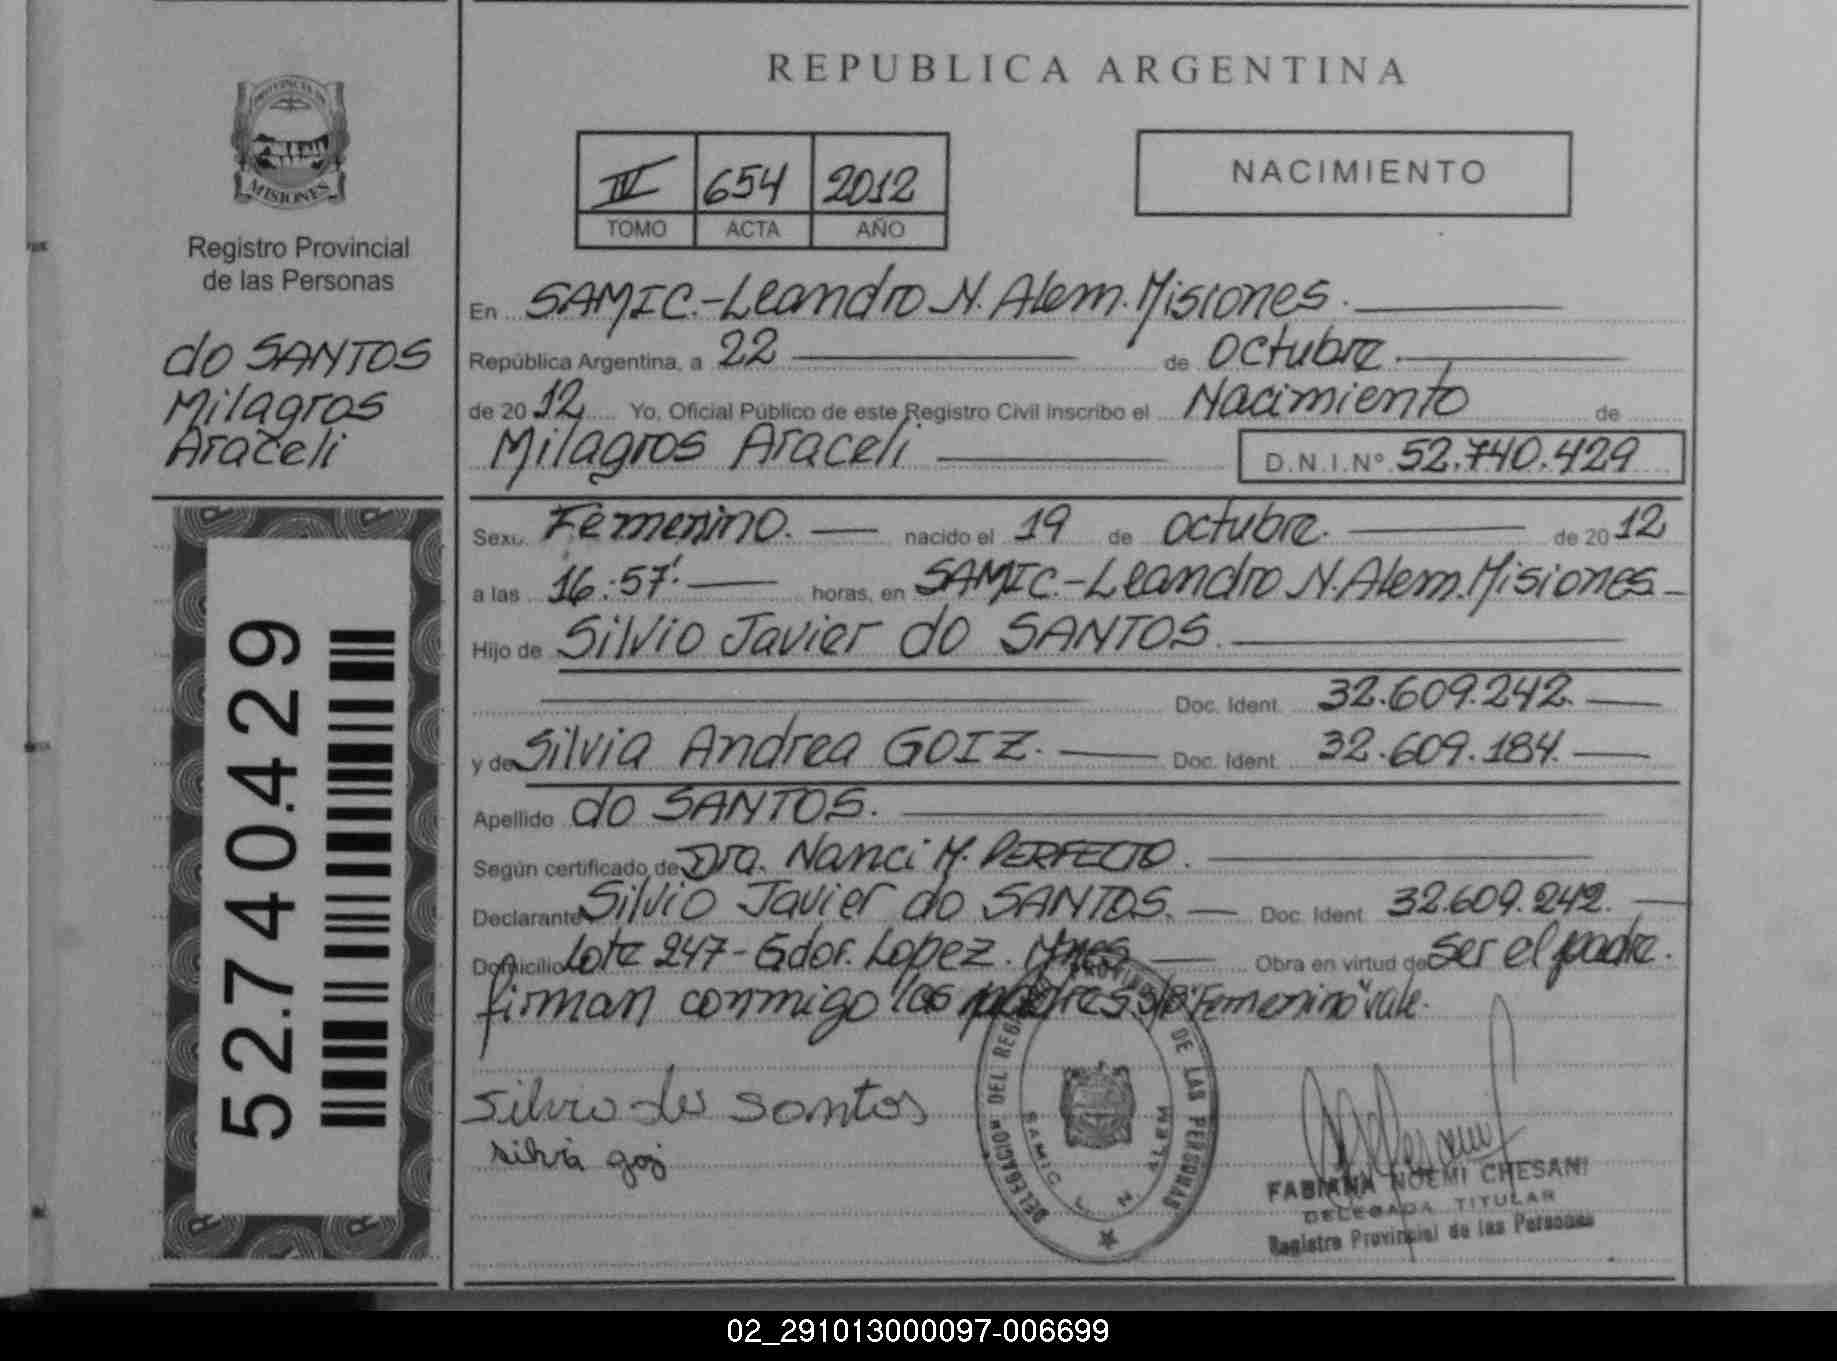 REPUBLICA ARGENTINA
PROVINCIA DE
MISIONES
Registro Provincial
de las Personas
do SANTOS
Milagros
Araceli
52.740.429
IV 654 2012
TOMO ACTA AÑO
NACIMIENTO
En SAMIC.-Leandro N. Alem. Misiones.
República Argentina, a 22 de octubre.
de 2012 Yo, Oficial Público de este Registro Civil inscribo el Nacimiento de
Milagros Araceli D.N.I.Nº 52.740.429
Sexo Femenino. nacido el 19 de octubre. de 2012
a las 16:57'. horas, en SAMIC.-Leandro N. Alem. Misiones
Hijo de Silvio Javier do SANTOS.
Doc. Ident. 32.609.242.
y de Silvia Andrea GOIZ. Doc. Ident. 32.609.184.
Apellido do SANTOS.
Según certificado de Dra. Nanci M. PERFECTO.
Declarante Silvio Javier do SANTOS. Doc. Ident. 32.609.242.
Domicilio Lote 247-Gdor. Lopez. Mnes Obra en virtud de Ser el padre.
firman conmigo los padres s/r "Femenino" vale.
silvio do santos
silvia goiz
DELEGACION DEL REG DE LAS PERSONAS
SAMIC L. N. ALEM
FABIANA NOEMI CHESANI
DELEGADA TITULAR
Registro Provincial de las Personas
02_291013000097-006699